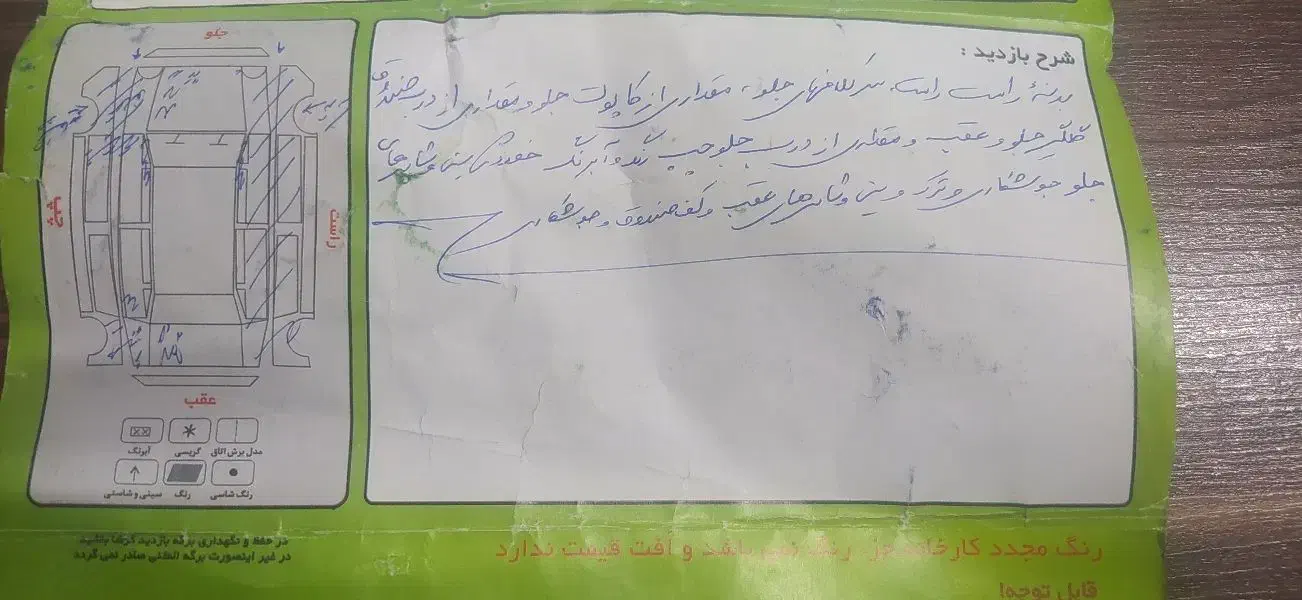 شرح بازدید :
بدنهٔ راست راست، سر گلافهای جلو، مقداری از کاپوت جلو و مقداری از درب صندوق
گلگیر جلو و عقب و مقداری از درب جلو چپ رنگ و آبرنگ خوردگی سینی و شاسی‌های
جلو جوشکاری و ترک و سینی و شاسی‌های عقب و کف صندوق و جوشکاری
جلو
راست
چپ
عقب
مدل برش اتاق
گریسی
آبرنگ
رنگ شاسی
رنگ
سینی و شاسی
در حفظ و نگهداری برگه بازدید کوشا باشید
در غیر اینصورت برگه المثنی صادر نمی گردد
رنگ مجدد کارخانه جز رنگ نمی باشد و افت قیمت ندارد
قابل توجه!